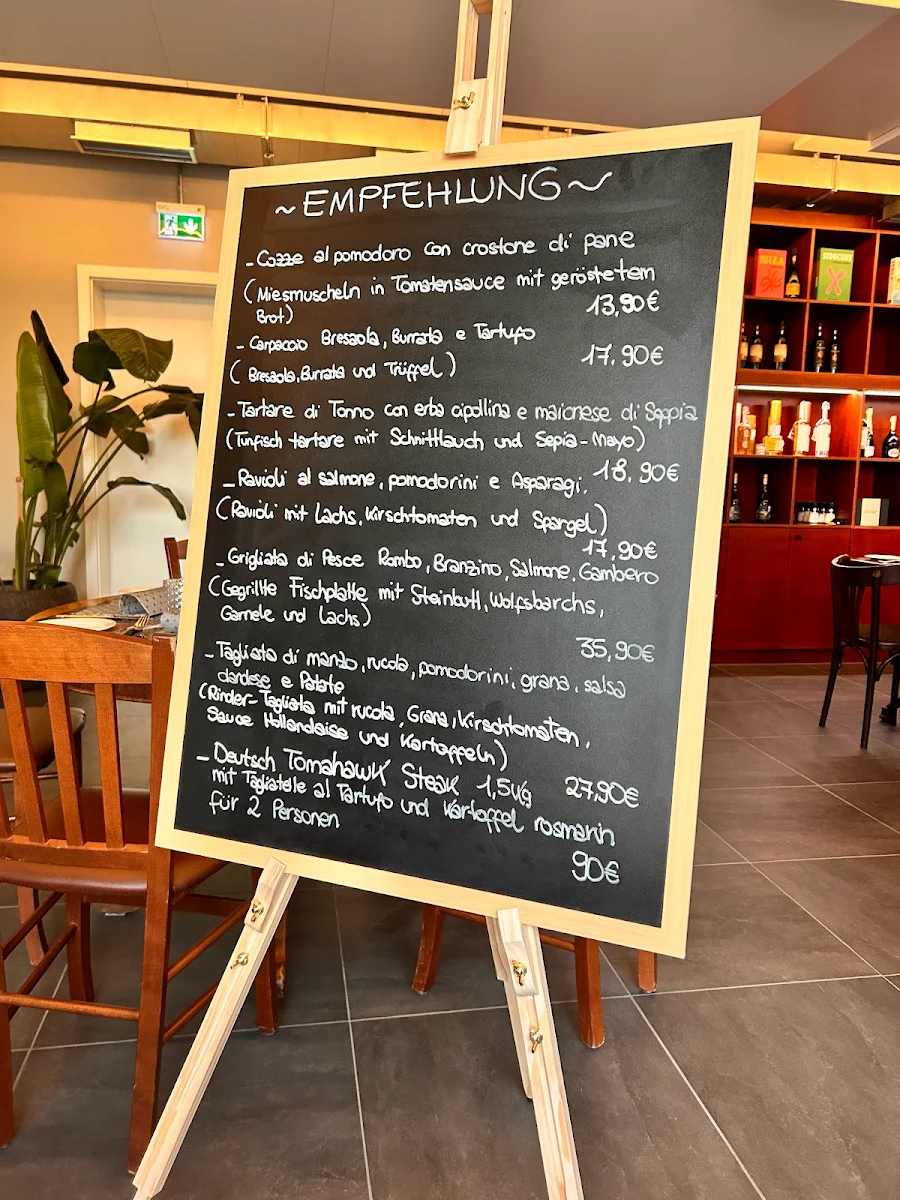 ~EMPFEHLUNG~
- Cozze al pomodoro con crostone di pane
(Miesmuscheln in Tomatensauce mit geröstetem
Brot)
13,90€
- Carpaccio Bresaola, Burrata e Tartufo
17,90€
(Bresaola, Burrata und Trüffel)
- Tartare di Tonno con erba cipollina e maionese di Seppia
(Tunfisch tartare mit Schnittlauch und Sepia-Mayo)
18,90€
- Ravioli al salmone, pomodorini e Asparagi.
(Ravioli mit Lachs, Kirschtomaten und Spargel)
17,90€
- Grigliata di Pesce Rombo, Branzino, Salmone, Gambero
(Gegrillte Fischplatte mit Steinbutt, Wolfsbarchs,
Garnele und Lachs)
35,90€
- Tagliata di manzo, rucola, pomodorini, grana, salsa
olandese e Patate
(Rinder-Tagliata mit rucola, Grana, Kirschtomaten,
Sauce Hollandaise und Kartoffeln)
27,90€
- Deutsch Tomahawk Steak 1,5kg
mit Tagliatelle al Tartufo und Kartoffel rosmarin
für 2 Personen
90€
IBIZA
SEDUCTIVE